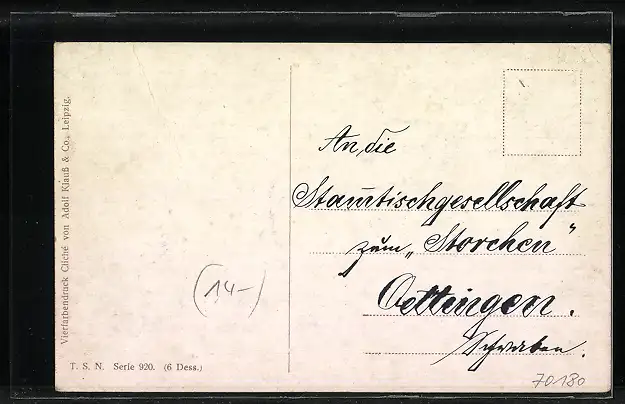 Vierfarbendruck Cliché von Adolf Klauß & Co., Leipzig.
An die
Stam̄tischgesellschaft
zum „Storchen“
Oettingen.
Schwaben.
(14-)
T. S. N. Serie 920. (6 Dess.)
70180